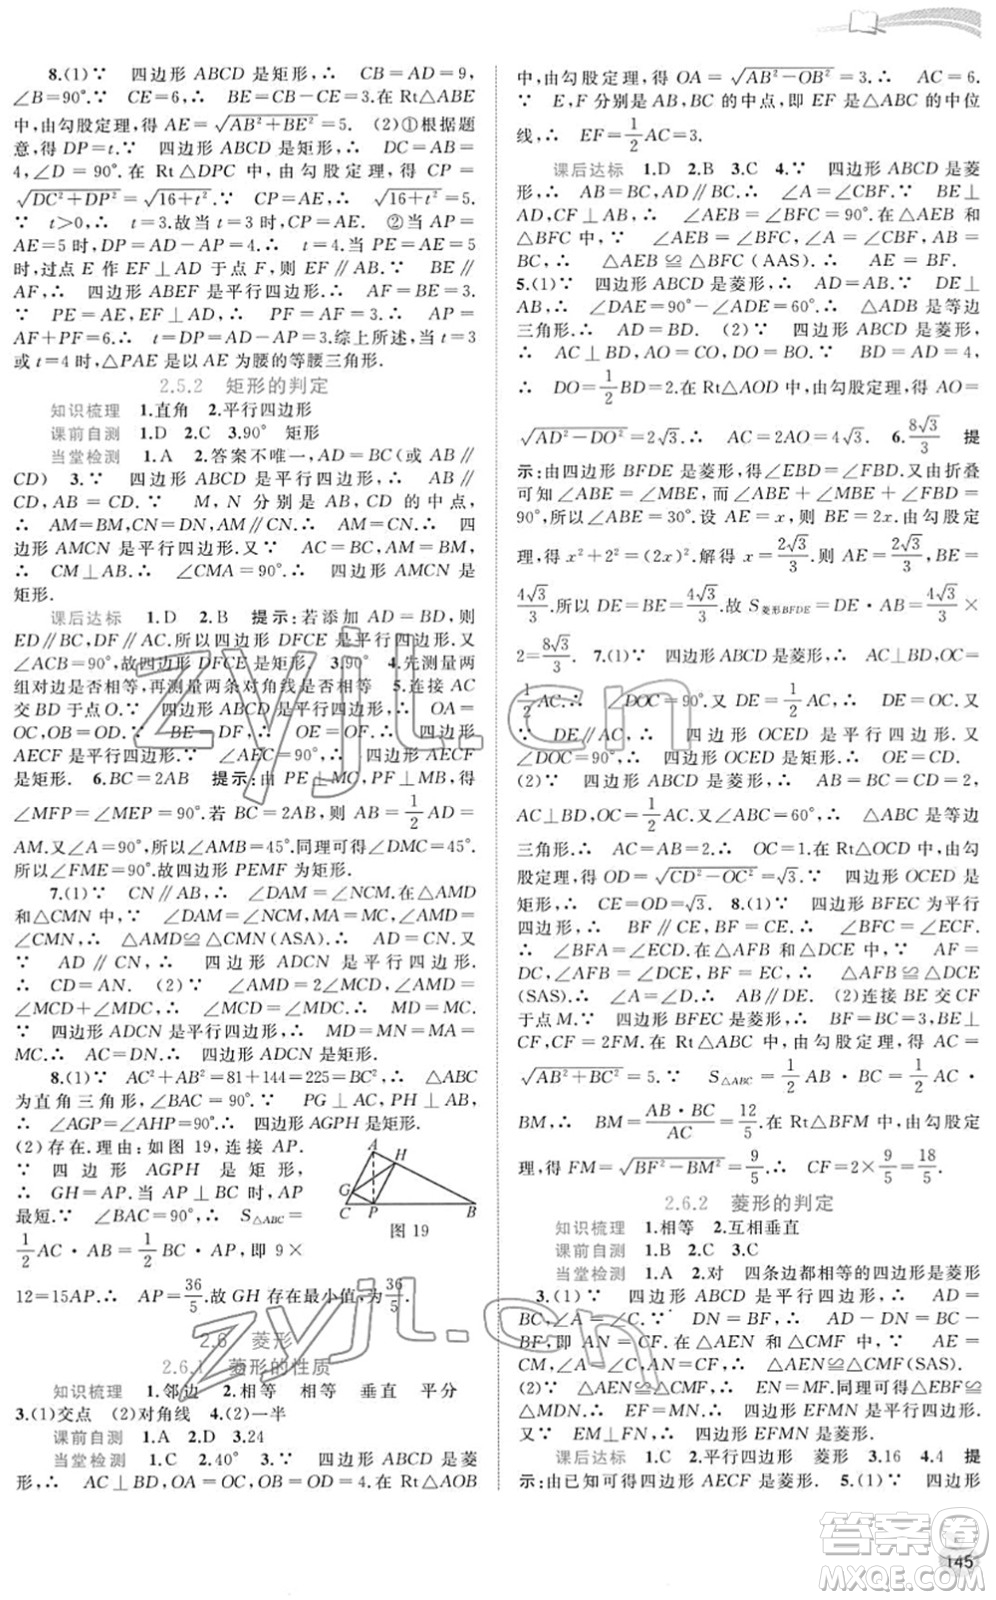 8.(1)∵ 四边形 ABCD 是矩形,∴ CB=AD=9,
∠B=90°.∵ CE=6,∴ BE=CB-CE=3.在 Rt△ABE
中,由勾股定理,得 AE=√(AB²+BE²)=5. (2)①根据题
意,得 DP=t.∵ 四边形 ABCD 是矩形,∴ DC=AB=
4,∠D=90°.在 Rt△DPC 中,由勾股定理,得 CP=
√(DC²+DP²)=√(16+t²).∵ CP=AE,∴ √(16+t²)=5.
∵ t>0,∴ t=3.故当 t=3 时,CP=AE. ②当 AP=
AE=5 时,DP=AD-AP=4,∴ t=4.当 PE=AE=5
时,过点 E 作 EF⊥AD 于点 F,则 EF∥AB.∵ BE∥
AF,∴ 四边形 ABEF 是平行四边形.∴ AF=BE=3.
∵ PE=AE,EF⊥AD,∴ PF=AF=3.∴ AP=
AF+PF=6.∴ t=DP=AD-AP=3.综上所述,当 t=3
或 t=4 时,△PAE 是以 AE 为腰的等腰三角形.
2.5.2 矩形的判定
知识梳理 1.直角 2.平行四边形
课前自测 1.D 2.C 3.90° 矩形
当堂检测 1.A 2.答案不唯一,AD=BC(或 AB∥
CD) 3.∵ 四边形 ABCD 是平行四边形,∴ AB∥
CD,AB=CD.∵ M,N 分别是 AB,CD 的中点,
∴ AM=BM,CN=DN,AM∥CN.∴ AM=CN.∴ 四
边形 AMCN 是平行四边形.又∵ AC=BC,AM=BM,
∴ CM⊥AB.∴ ∠CMA=90°.∴ 四边形 AMCN 是
矩形.
课后达标 1.D 2.B 提示:若添加 AD=BD,则
ED∥BC,DF∥AC.所以四边形 DFCE 是平行四边形.又
∠ACB=90°,故四边形 DFCE 是矩形. 3.90° 4.先测量两
组对边是否相等,再测量两条对角线是否相等 5.连接 AC
交 BD 于点 O.∵ 四边形 ABCD 是平行四边形,∴ OA=
OC,OB=OD.∵ BE=DF,∴ OE=OF.∴ 四边形
AECF 是平行四边形.∵ ∠AEC=90°,∴ 四边形 AECF
是矩形. 6.BC=2AB 提示:由 PE⊥MC,PF⊥MB,得
∠MFP=∠MEP=90°.若 BC=2AB,则 AB=1/2AD=
AM.又∠A=90°,所以∠AMB=45°.同理可得∠DMC=45°.
所以∠FME=90°.故四边形 PEMF 为矩形.
7.(1)∵ CN∥AB,∴ ∠DAM=∠NCM.在△AMD
和△CMN 中,∵ ∠DAM=∠NCM,MA=MC,∠AMD=
∠CMN,∴ △AMD≌△CMN(ASA).∴ AD=CN.又
∵ AD∥CN,∴ 四边形 ADCN 是平行四边形.
∴ CD=AN. (2)∵ ∠AMD=2∠MCD,∠AMD=
∠MCD+∠MDC,∴ ∠MCD=∠MDC.∴ MD=MC.
∵ 四边形 ADCN 是平行四边形,∴ MD=MN=MA=
MC.∴ AC=DN.∴ 四边形 ADCN 是矩形.
8.(1)∵ AC²+AB²=81+144=225=BC²,∴ △ABC
为直角三角形,∠BAC=90°.∵ PG⊥AC,PH⊥AB,
∴ ∠AGP=∠AHP=90°.∴ 四边形 AGPH 是矩形.
(2)存在.理由:如图 19,连接 AP.
∵ 四边形 AGPH 是矩形,
∴ GH=AP.当 AP⊥BC 时,AP
最短.∵ ∠BAC=90°,∴ S△ABC=
1/2AC·AB=1/2BC·AP,即 9×
12=15AP.∴ AP=36/5.故 GH 存在最小值,为36/5.
A
H
G
C P B
图 19
2.6 菱形
2.6.1 菱形的性质
知识梳理 1.邻边 2.相等 相等 垂直 平分
3.(1)交点 (2)对角线 4.(2)一半
课前自测 1.A 2.D 3.24
当堂检测 1.C 2.40° 3.∵ 四边形 ABCD 是菱
形,∴ AC⊥BD,OA=OC,OB=OD=4.在 Rt△AOB
中,由勾股定理,得 OA=√(AB²-OB²)=3.∴ AC=6.
∵ E,F 分别是 AB,BC 的中点,即 EF 是△ABC 的中位
线,∴ EF=1/2AC=3.
课后达标 1.D 2.B 3.C 4.∵ 四边形 ABCD 是菱
形,∴ AB=BC,AD∥BC.∴ ∠A=∠CBF.∵ BE⊥
AD,CF⊥AB,∴ ∠AEB=∠BFC=90°.在△AEB 和
△BFC 中,∵ ∠AEB=∠BFC,∠A=∠CBF,AB=
BC,∴ △AEB≌△BFC(AAS).∴ AE=BF.
5.(1)∵ 四边形 ABCD 是菱形,∴ AD=AB.∵ DE⊥
AB,∴ ∠DAE=90°-∠ADE=60°.∴ △ADB 是等边
三角形.∴ AD=BD. (2)∵ 四边形 ABCD 是菱形,
∴ AC⊥BD,AC=2AO,AD=AB=4.∴ BD=AD=4,
∴ DO=1/2BD=2.在 Rt△AOD 中,由勾股定理,得 AO=
√(AD²-DO²)=2√3.∴ AC=2AO=4√3. 6.8√3/3 提
示:由四边形 BFDE 是菱形,得∠EBD=∠FBD.又由折叠
可知∠ABE=∠MBE,而∠ABE+∠MBE+∠FBD=
90°,所以∠ABE=30°.设 AE=x,则 BE=2x.由勾股定
理,得 x²+2²=(2x)².解得 x=2√3/3.则 AE=2√3/3,BE=
4√3/3.所以 DE=BE=4√3/3.故 S菱形BFDE=DE·AB=4√3/3×
2=8√3/3. 7.(1)∵ 四边形 ABCD 是菱形,∴ AC⊥BD,OC=
1/2AC.∴ ∠DOC=90°.又 DE=1/2AC,∴ DE=OC.又
∵ DE∥AC,∴ 四边形 OCED 是平行四边形.又
∠DOC=90°,∴ 四边形 OCED 是矩形.∴ OE=CD.
(2)∵ 四边形 ABCD 是菱形,∴ AB=BC=CD=2,
AC⊥BD,OC=1/2AC.又∠ABC=60°,∴ △ABC 是等边
三角形.∴ AC=AB=2.∴ OC=1.在 Rt△OCD 中,由勾
股定理,得 OD=√(CD²-OC²)=√3.∵ 四边形 OCED 是
矩形,∴ CE=OD=√3. 8.(1)∵ 四边形 BFEC 为平行
四边形,∴ BF∥CE,BF=CE.∴ ∠BFC=∠ECF.
∴ ∠BFA=∠ECD.在△AFB 和△DCE 中,∵ AF=
DC,∠BFA=∠ECD,BF=CE,∴ △AFB≌△DCE
(SAS).∴ ∠A=∠D.∴ AB∥DE. (2)连接 BE 交 CF
于点 M.∵ 四边形 BFEC 是菱形,∴ BF=BC=3,BE⊥
CF,CF=2FM.在 Rt△ABC 中,由勾股定理,得 AC=
√(AB²+BC²)=5.∵ S△ABC=1/2AB·BC=1/2AC·
BM,∴ BM=AB·BC/AC=12/5.在 Rt△BFM 中,由勾股定
理,得 FM=√(BF²-BM²)=9/5.∴ CF=2×9/5=18/5.
2.6.2 菱形的判定
知识梳理 1.相等 2.互相垂直
课前自测 1.B 2.C 3.C
当堂检测 1.A 2.对 四条边都相等的四边形是菱形
3.(1)∵ 四边形 ABCD 是平行四边形,∴ AD=
BC,∠A=∠C.∵ DN=BF,∴ AD-DN=BC-
BF,即 AN=CF.在△AEN 和△CMF 中,∵ AE=
CM,∠A=∠C,AN=CF,∴ △AEN≌△CMF(SAS).
(2)∵ △AEN≌△CMF,∴ EN=MF.同理可得△EBF≌
△MDN.∴ EF=MN.∴ 四边形 EFMN 是平行四边形.
又∵ EM⊥FN,∴ 四边形 EFMN 是菱形.
课后达标 1.C 2.平行四边形 菱形 3.16 4.4 提
示:由已知可得四边形 AECF 是菱形. 5.(1)∵ 四边形
145
zyjl.cn
zyjl.cn
答案圈
MXQE.COM